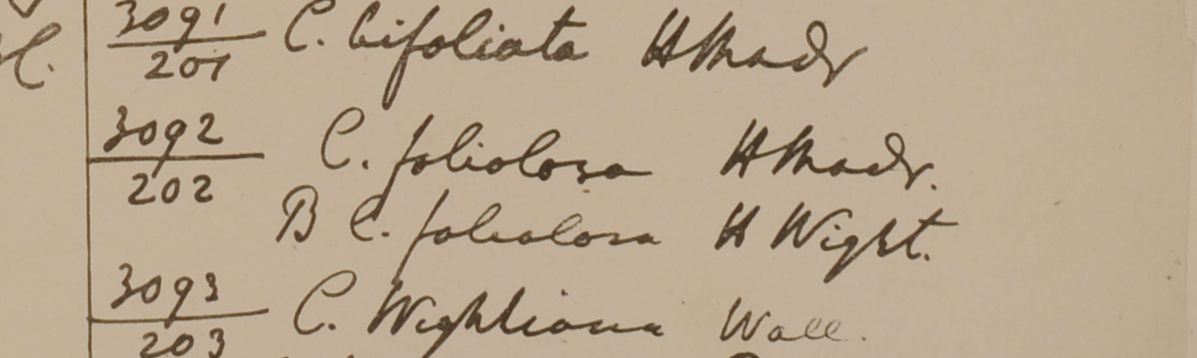 3091 C. bifoliata H Madr
201
3092 C. foliolosa H Madr.
202
B C. foliolosa H Wight.
3093 C. Wightiana Wall.
203